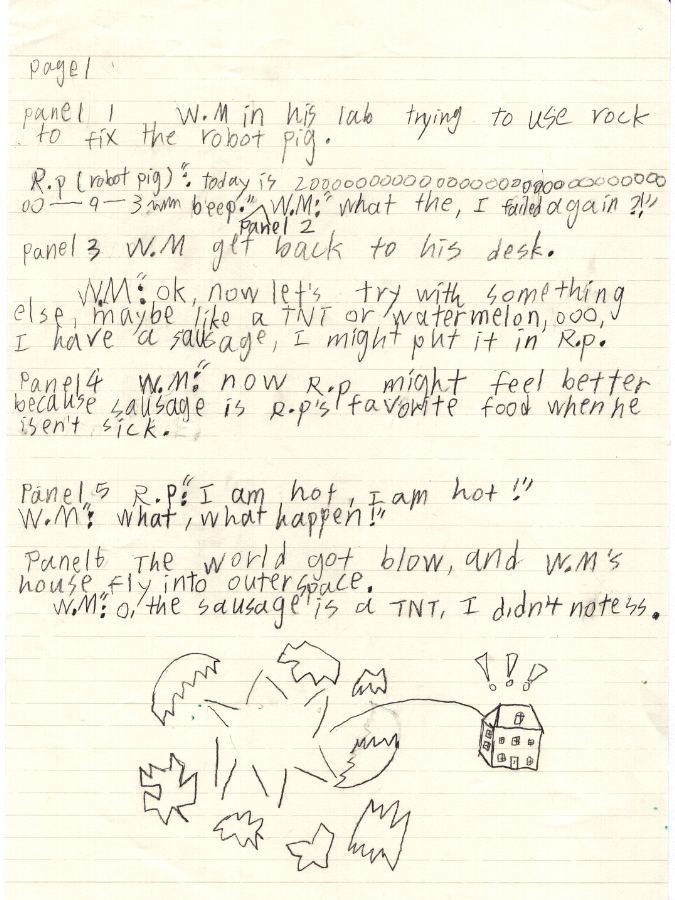 page 1
panel 1 W.M in his lab trying to use rock
to fix the robot pig.
R.p (robot pig)": today is 2000000000000000000000000000000
00 — 9 — 3 beep." W.M:" what the, I failed again ?!"
Panel 2
panel 3 W.M get back to his desk.
W.M": ok, now let's try with something
else, maybe like a TNT or watermelon, ooo,
I have a sausage, I might put it in R.p.
Panel 4 W.M:" now R.p might feel better
because sausage is R.p's favorite food when he
isen't sick.
Panel 5 R.P:" I am hot, I am hot !"
W.M": what, what happen!"
Panel 6 The world got blow, and W.M's
house fly into outerspace.
W.M": o, the sausage is a TNT, I didn't notess.
! ! !